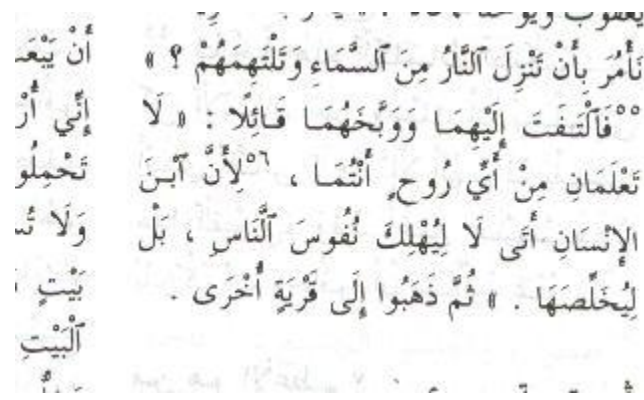 نَأْمُرَ بِأَنْ تَنْزِلَ ٱلنَّارُ مِنَ ٱلسَّمَاءِ وَتَلْتَهِمَهُمْ ؟ »
°°فَٱلْتَفَتَ إِلَيْهِمَا وَوَبَّخَهُمَا قَائِلًا : « لَا
تَعْلَمَانِ مِنْ أَيِّ رُوحٍ أَنْتُمَا ، ٥٦لِأَنَّ ٱبْنَ
الإِنْسَانِ أَتَى لَا لِيُهْلِكَ نُفُوسَ ٱلنَّاسِ ، بَلْ
لِيُخَلِّصَهَا . » ثُمَّ ذَهَبُوا إِلَى قَرْيَةٍ أُخْرَى .
أَنْ
إِنِّي
وَلَا
بَيْتٍ
ٱلْبَيْتِ